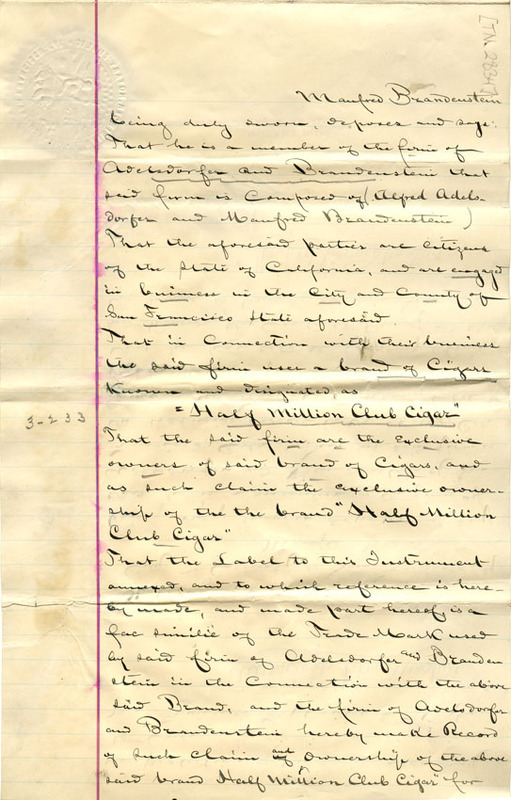 [TN 28347
Manfred Brandenstein
being duly sworn, deposes and says:
That he is a member of the firm of
Adelsdorfer and Brandenstein that
said firm is Composed of (Alfred Adels-
dorfer and Manfred Brandenstein)
That the aforesaid parties are citizens
of the State of California, and are engaged
in business in the City and County of
San Francisco State aforesaid.
That in Connection with their business
the said firm uses a brand of Cigars
Known and designated, as
"Half Million Club Cigar"
3-233
That the said firm are the exclusive
owners of said brand of Cigars, and
as such claim the exclusive owner-
ship of the the brand "Half Million
Club Cigar"
That the Label to this Instrument
annexed, and to which reference is here-
by made, and made part hereof is a
fac similie of the Trade Mark used
by said firm of Adelsdorfer and Branden
stein in the Connection with the above
said Brand, and the firm of Adelsdorfer
and Brandenstein hereby make Record
of such claim and ownership of the above
said brand Half Million Club Cigar" for